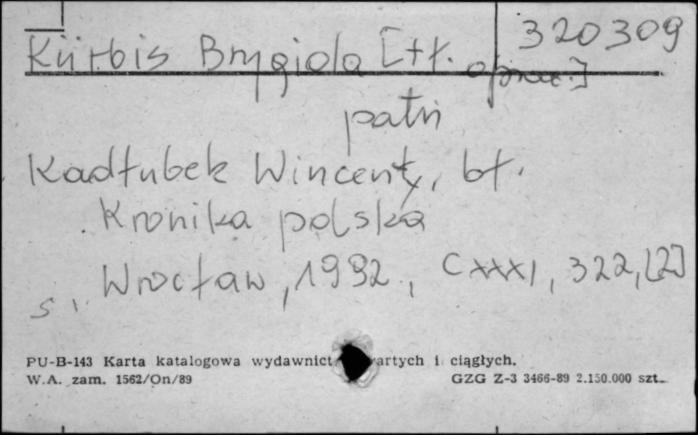 320309
Kürbis Brygida [tł. oprac.]
patrz
Kadłubek Wincenty, bł.
Kronika polska
Wrocław, 1992, CXXXI, 322, [2]
s.
PU-B-143 Karta katalogowa wydawnict artych i ciągłych.
W.A. zam. 1562/On/89 GZG Z-3 3466-89 2.150.000 szt.